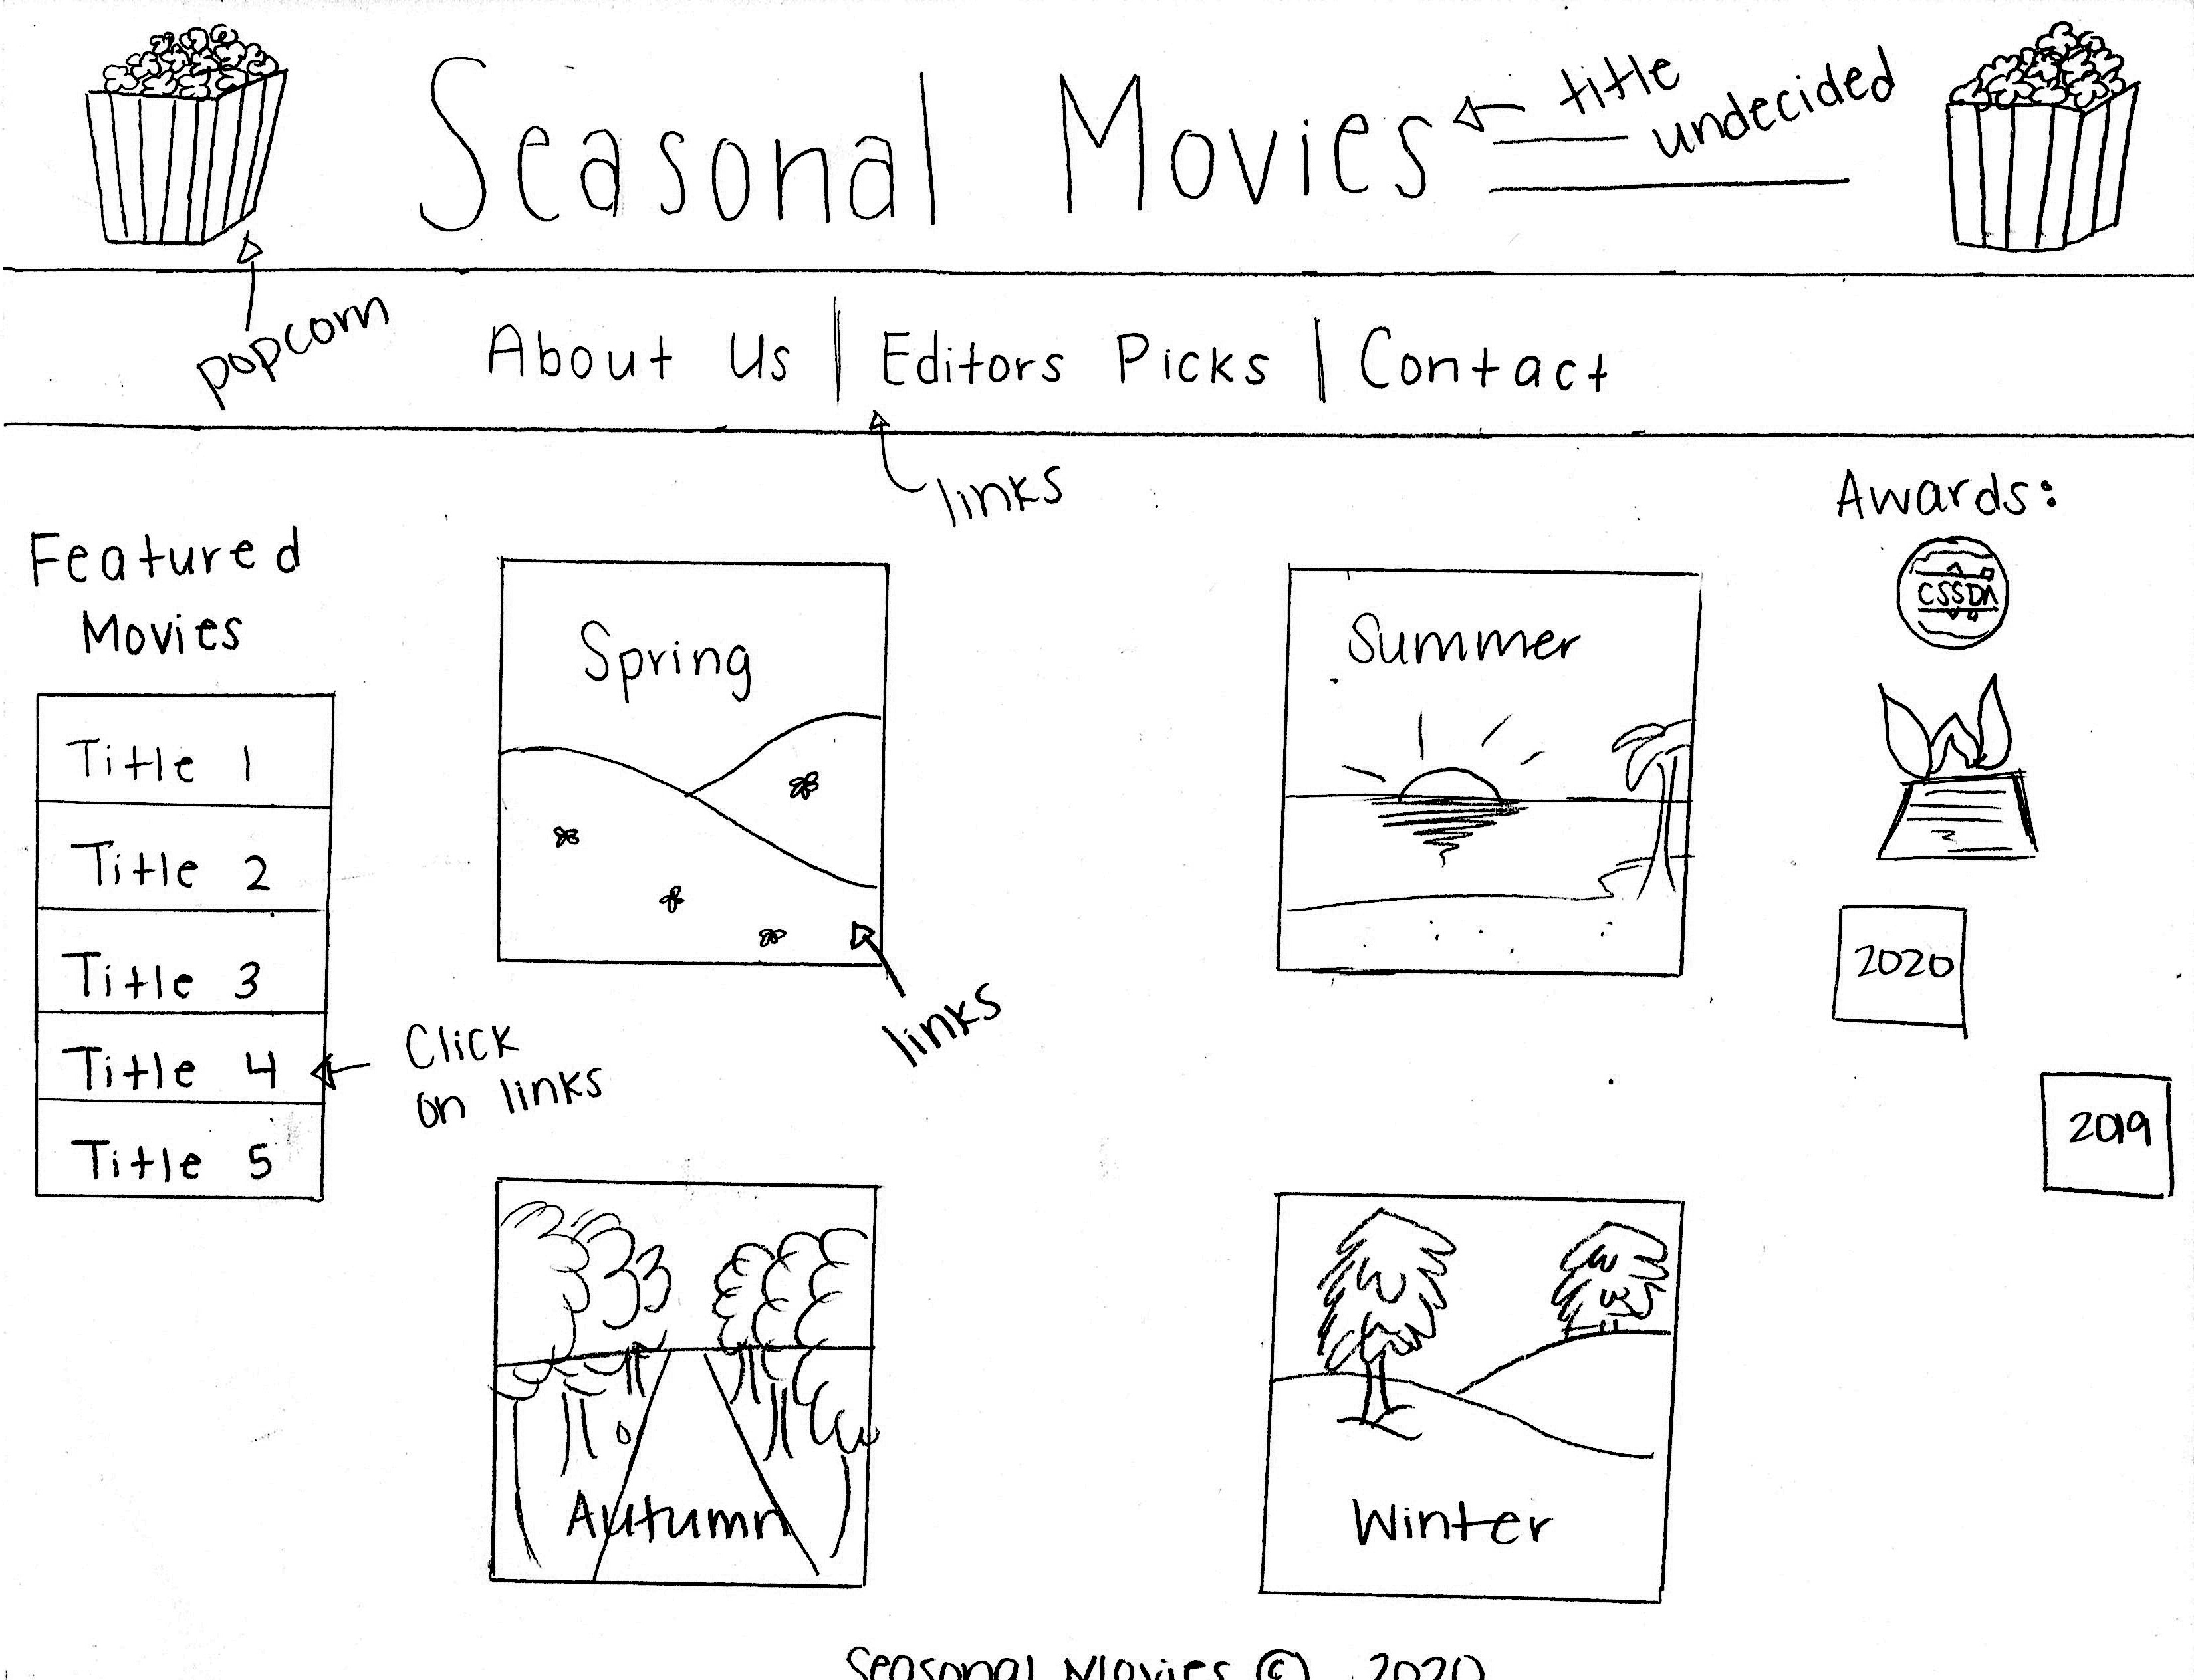 Seasonal Movies
title
undecided
popcorn
About Us | Editors Picks | Contact
links
Featured
Movies
Title 1
Title 2
Title 3
Title 4
Title 5
Click
on links
Spring
links
Summer
Autumn
Winter
Awards:
CSSDA
W
2020
2019
Seasonal Movies © 2020